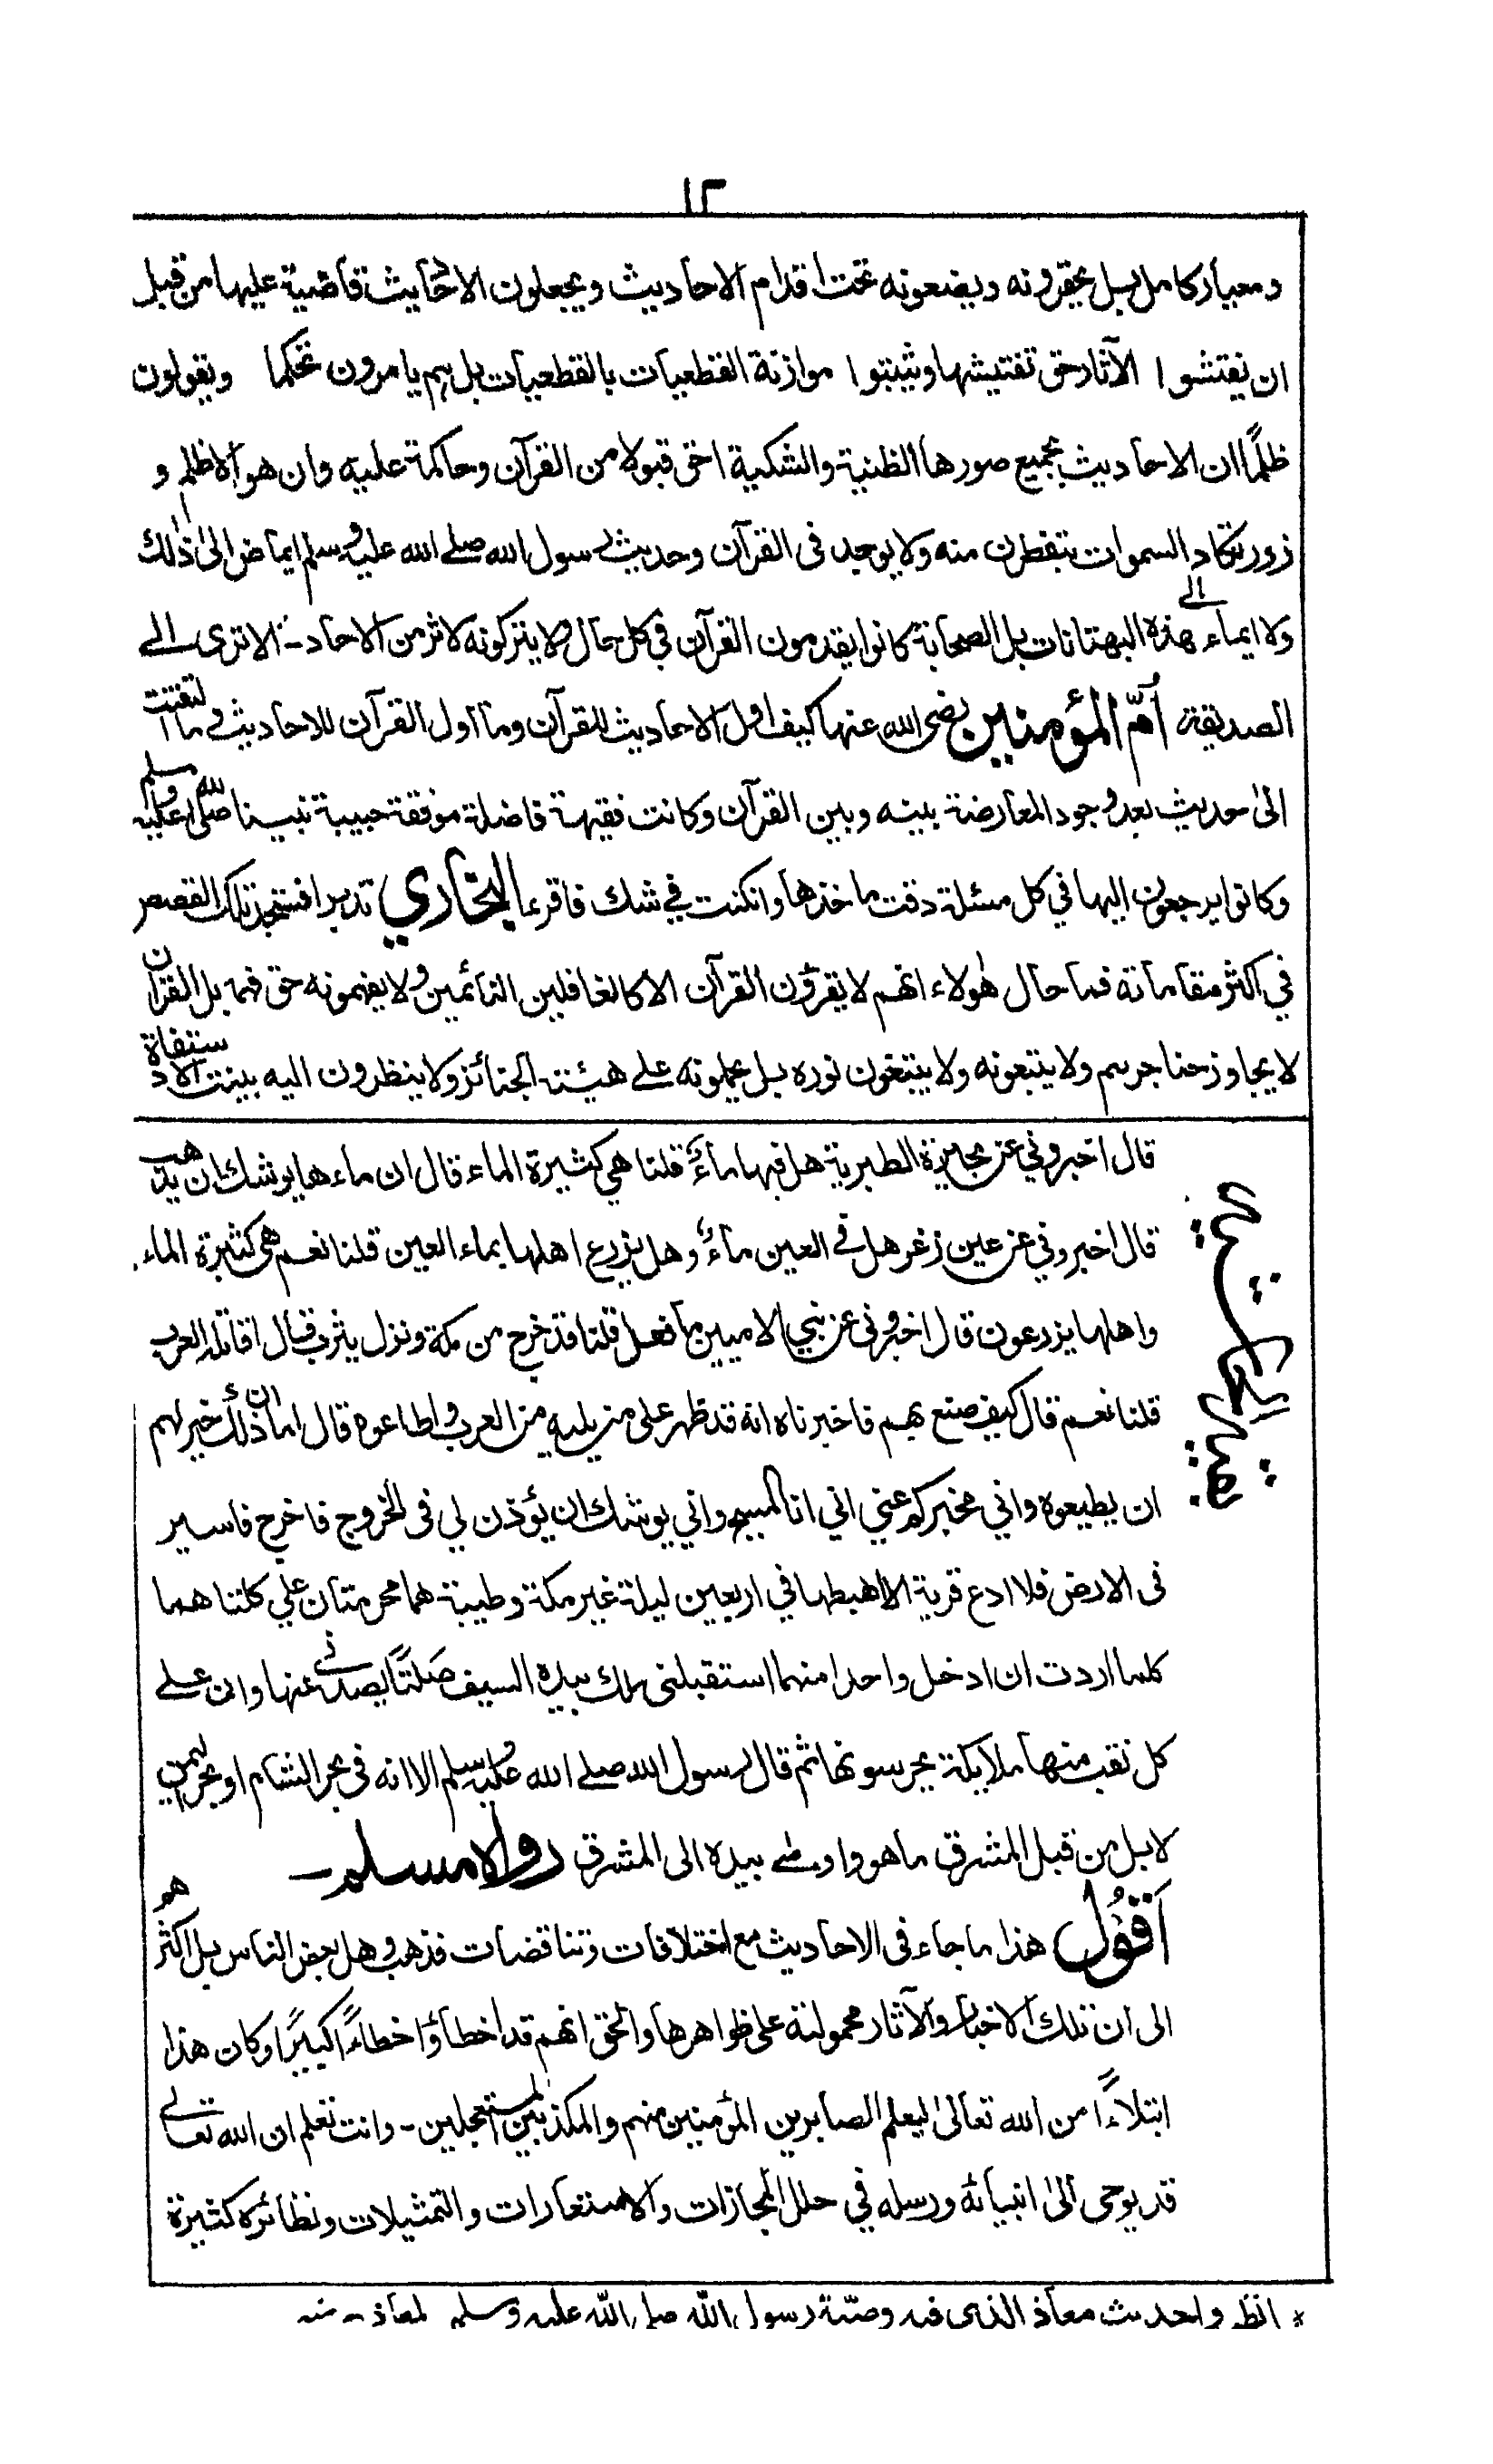 ١٢
ومعيار كامل بل يحقرونه ويضعونه تحت اقدام الاحاديث ويجعلون الاحاديث قاضية عليها من قبل
ان يفتشوا الآثار حق تفتيشها ويثبتوا موازنة القطعيات بالقطعيات بل هم يامرون تحكما ويقولون
ظلمًا ان الاحاديث بجميع صورها الظنية والشكية احق قبولا من القرآن وحاكمة عليه وان هو الا ظلم و
زور تكاد السموات يتفطرن منه ولا يوجد فى القرآن وحديث رسول الله صلے الله عليه وسلم ايماض الىٰ ذٰلك
ولا ايماء الے هذه البهتانات بل الصحابة كانوا يقدمون القرآن في كل حال ولا يتركونه لاثر من الاحاد ـ الا ترى الے
الصديقة أمّ المؤمنين رضى الله عنها كيف اول الاحاديث للقرآن وما أول القرآن للاحاديث وما التفتت
الىٰ حديث بعد وجود المعارضة بينه وبين القرآن وكانت فقيهة فاضلة موفقة حبيبة نبينا صلى الله عليه وسلم
وكانوا يرجعون اليها في كل مسئلة دقت ماخذها وانكنت في شك فاقرء البخاري تدبرا فستجد تلك القصص
في اكثر مقاماته فما حال هٰولاء انهم لا يقرؤن القرآن الا كالغافلين النائمين ولا يفهمونه حق فهمه بل القرآن
لا يجاوز حناجرهم ولا يتبعونه ولا يبتغون نوره بل يحملونه علے هيئة الجنائز ولا ينظرون اليه بنية الاستفادة
قال اخبروني عن بحيرة الطبرية هل فيها ماءٌ قلنا هي كثيرة الماء قال ان ماءها يوشك ان يذهب
قال اخبروني عن عين زغر هل فے العين ماءٌ وهل يزرع اهلها بماء العين قلنا نعم هى كثيرة الماء
واهلها يزرعون قال اخبرونى عن نبي الاميين ما فعل قلنا قد خرج من مكة ونزل يثرب قال اقاتله العرب
قلنا نعم قال كيف صنع بهم فاخبرناه انه قد ظهر على من يليه من العرب واطاعوه قال اما ان ذلك خير لهم
ان يطيعوه واني مخبركم عني اني انا المسيح واني يوشك ان يؤذن لي فى الخروج فاخرج فاسير
فى الارض فلا ادع قرية الا هبطها في اربعين ليلة غير مكة وطيبة هما محرمتان علي كلتاهما
كلما اردت ان ادخل واحدا منهما استقبلنى ملك بيده السيف صلتًا يصدنے عنها وان علے
كل نقب منها ملايكة يحرسونها ثم قال رسول الله صلے الله عليه وسلم الا انه فى بحر الشام او بحر اليمن
لا بل من قبل المشرق ما هو واومے بيده الى المشرق رواه مسلم ـ
اقول هذا ما جاء فى الاحاديث مع اختلافات وتناقضات فذهب وهل بعض الناس بل اكثرهم
الى ان تلك الاخبار والآثار محمولة على ظواهرها والحق انهم قد اخطاؤا خطاءً كبيرًا وكان هذا
ابتلاءًا من الله تعالىٰ ليعلم الصابرين المؤمنين منهم والمكذبين المستعجلين ـ وانت تعلم ان الله تعالے
قد يوحى الىٰ انبيائه ورسله في حلل المجازات والاستعارات والتمثيلات ونظائره كثيرة
بقية الحاشية
* انظروا حديث معاذ الذى فيه وصيّة رسول اللّٰه صلى اللّٰه عليه وسلم لمعاذ ـ منه